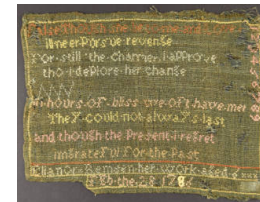 ill neer Pursue revenge
For still the charmer i approve
tho i deplore her change
in hours of bliss we oft have met
They could not always last
and though the Present i regret
im Grateful For the Past
her work aged
the 28 17